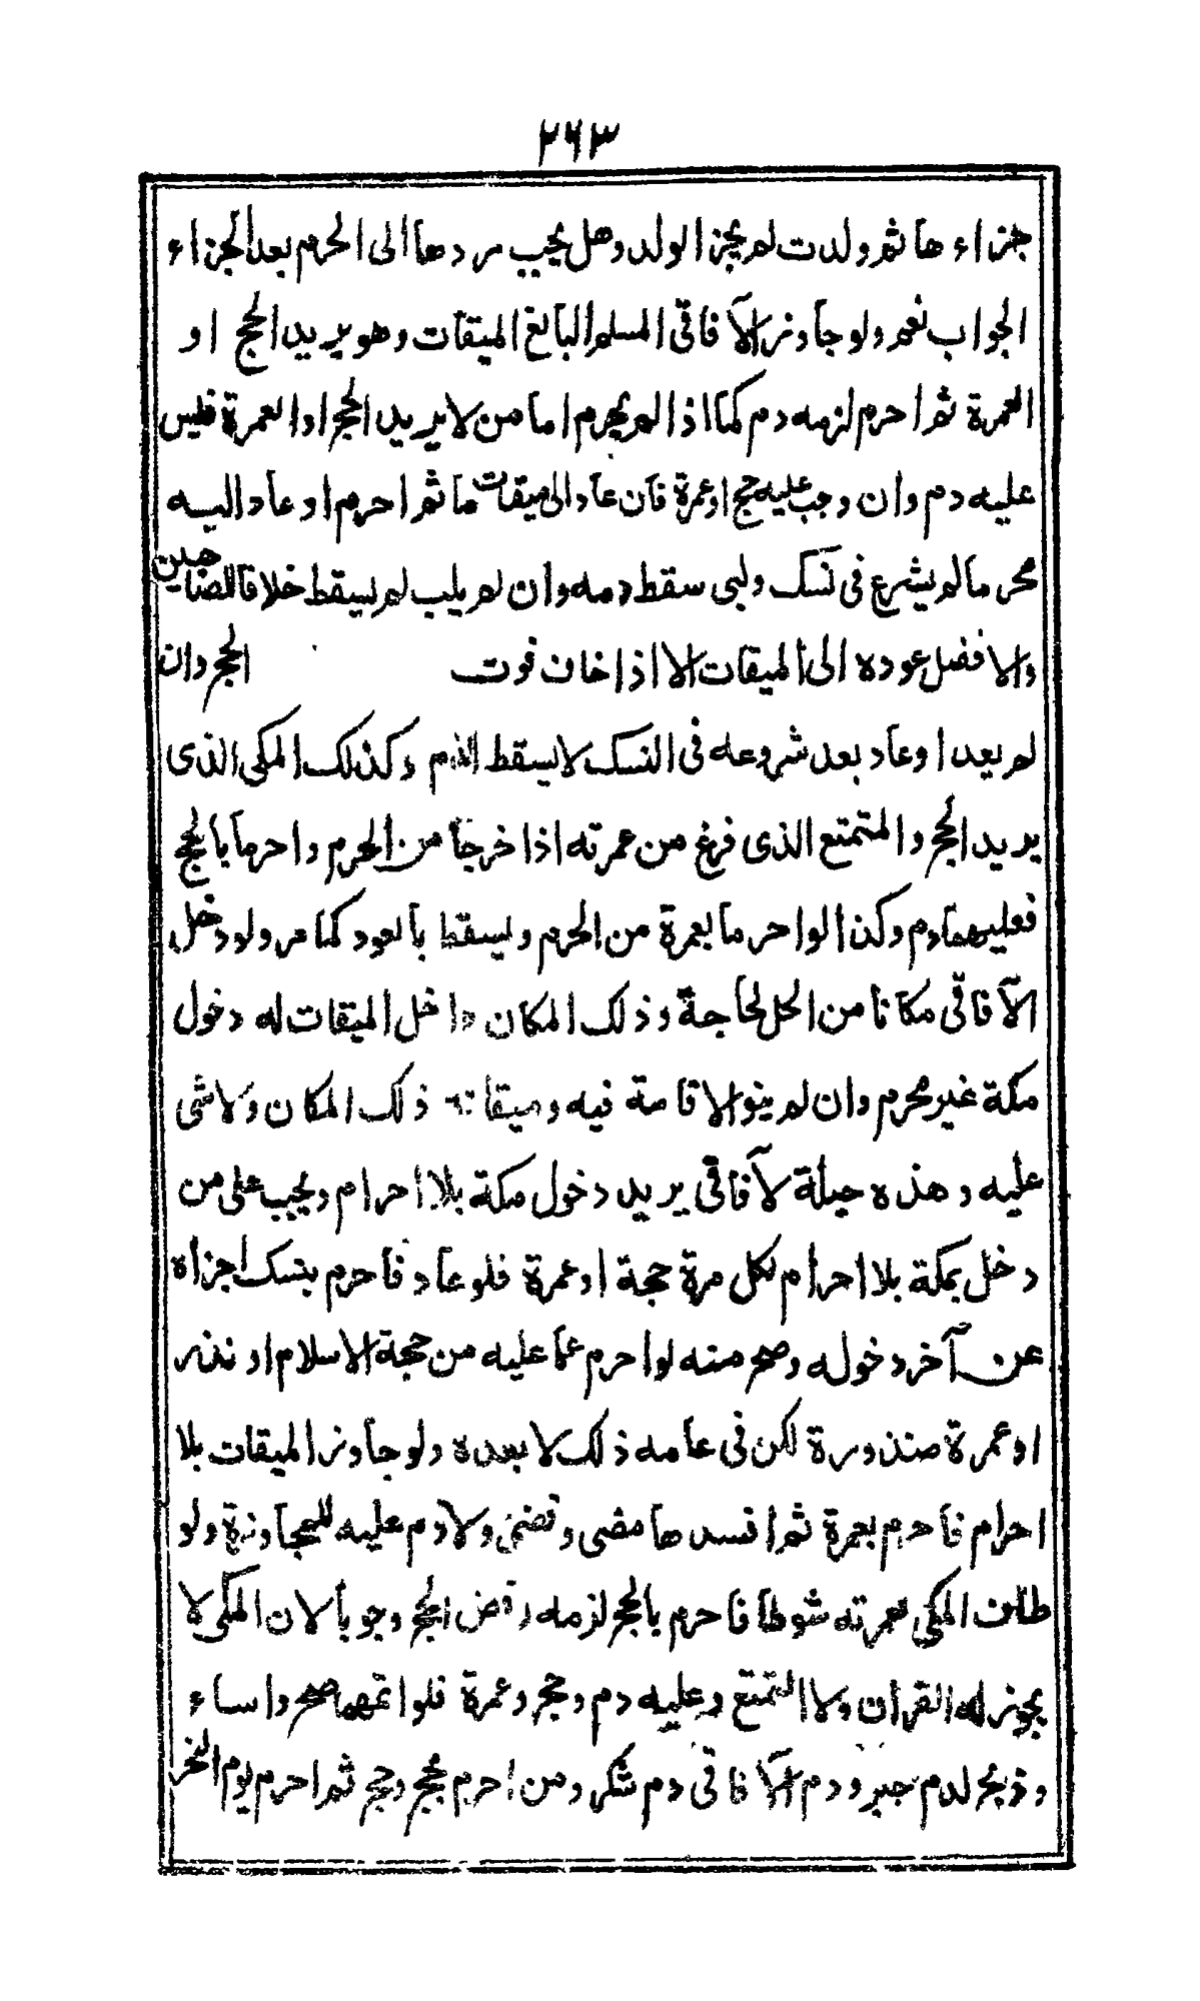 ٢٦٣
جزاءها ثم ولدت لم يجز الولد وهل يجب ردها الى الحرم بعد الجزاء
الجواب نعم ولو جاوز الآفاقى المسلم البالغ الميقات وهو يريد الحج او
العمرة ثم احرم لزمه دم كما اذا لم يحرم اما من لا يريد الحج او العمرة فليس
عليه دم وان وجب عليه حج او عمرة فان عاد الى ميقات ما ثم احرم او عاد اليه
محرما لم يشرع فى نسك ولبى سقط دمه وان لم يلب لم يسقط خلافا للصاحبين
والافضل عوده الى الميقات الا اذا خاف فوت الحج وان
لم يعد او عاد بعد شروعه فى النسك لا يسقط الدم وكذلك المكى الذى
يريد الحج والمتمتع الذى فرغ من عمرته اذا خرجا من الحرم واحرما بالحج
فعليهما دم وكذا لو احرما بعمرة من الحرم ويسقط بالعود كما مر ولو دخل
الآفاقى مكانا من الحل لحاجة وذلك المكان داخل الميقات له دخول
مكة غير محرم وان لم ينو الاقامة فيه وميقاته ذلك المكان ولا شى
عليه وهذه حيلة لآفاقى يريد دخول مكة بلا احرام ويجب على من
دخل بمكة بلا احرام لكل مرة حجة او عمرة فلو عاد فاحرم بنسك اجزاه
عن آخر دخوله وصح منه لو احرم عما عليه من حجة الاسلام او نذر
او عمرة منذورة لكن فى عامه ذلك لا بعده ولو جاوز الميقات بلا
احرام فاحرم بعمرة ثم افسدها مضى وقضى ولا دم عليه للمجاوزة ولو
طاف المكى لعمرته شوطا فاحرم بالحج لزمه رفض الحج وجوبا لان المكى لا
يجوز له القران ولا التمتع وعليه دم وحج وعمرة فلو اتمهما صح واساء
وذبح لدم جبر ودم الآفاقى دم شكر ومن احرم بحج وحج ثم احرم يوم النحر